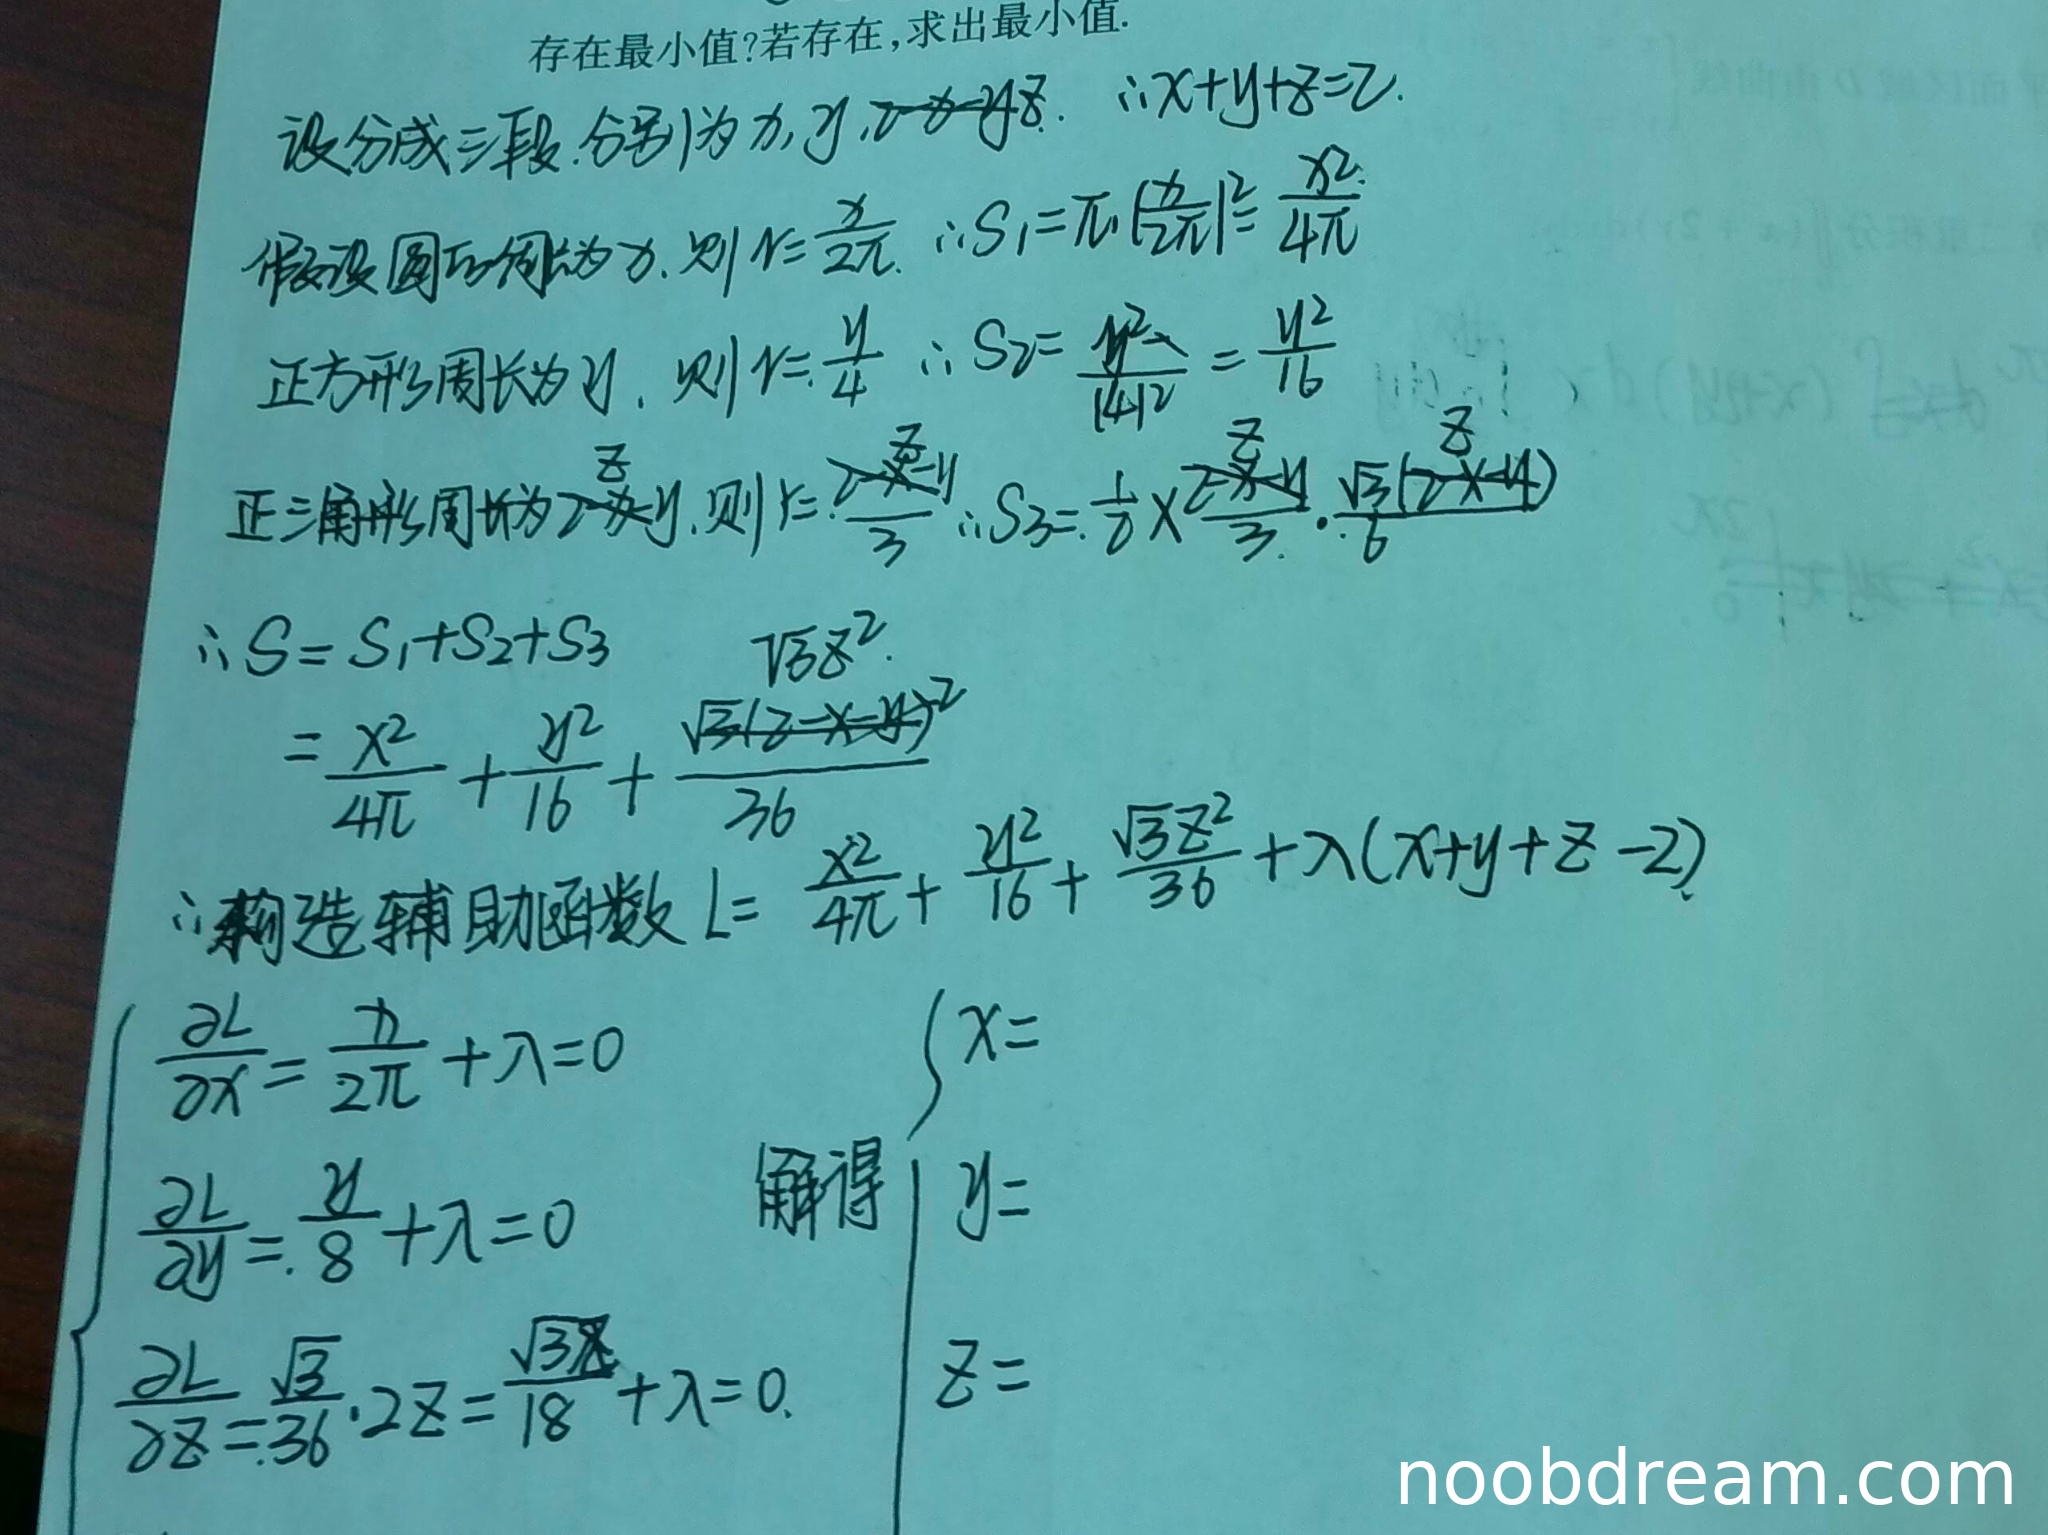 存在最小值?若存在,求出最小值.
设分成三段.分别为x,y,z. ∴x+y+z=2.
假设圆的周长为x.则r=x/2π. ∴S₁=π·(x/2π)²=x²/4π
正方形周长为y.则r=y/4 ∴S₂=y²/(4)²=y²/16
正三角形周长为z.则r=z/3 ∴S₃=1/2×z/3·√3z/6
∴S=S₁+S₂+S₃
=x²/4π+y²/16+√3z²/36
∴构造辅助函数L=x²/4π+y²/16+√3z²/36+λ(x+y+z-2)
∂L/∂x=x/2π+λ=0
∂L/∂y=y/8+λ=0
∂L/∂z=√3/36·2z=√3z/18+λ=0.
解得
x=
y=
z=
noobdream.com